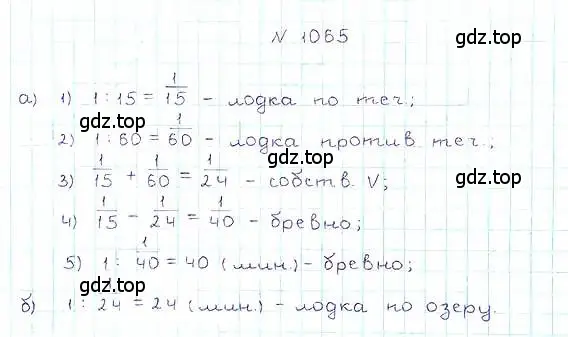 № 1065
gdz.top
а) 1) 1 : 15 = 1/15 - лодка по теч.;
gdz.top
2) 1 : 60 = 1/60 - лодка против теч.;
gdz.top
3) 1/15 + 1/60 = 1/24 - собств. V;
gdz.top
4) 1/15 - 1/24 = 1/40 - бревно;
gdz.top
5) 1 : 1/40 = 40 (мин.) - бревно;
gdz.top
б) 1 : 1/24 = 24 (мин.) - лодка по озеру.
gdz.top